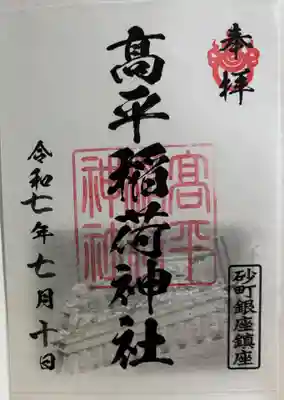 奉拝
髙平稲荷神社
髙平
稲荷
神社
砂町銀座鎮座
令和七年七月十日